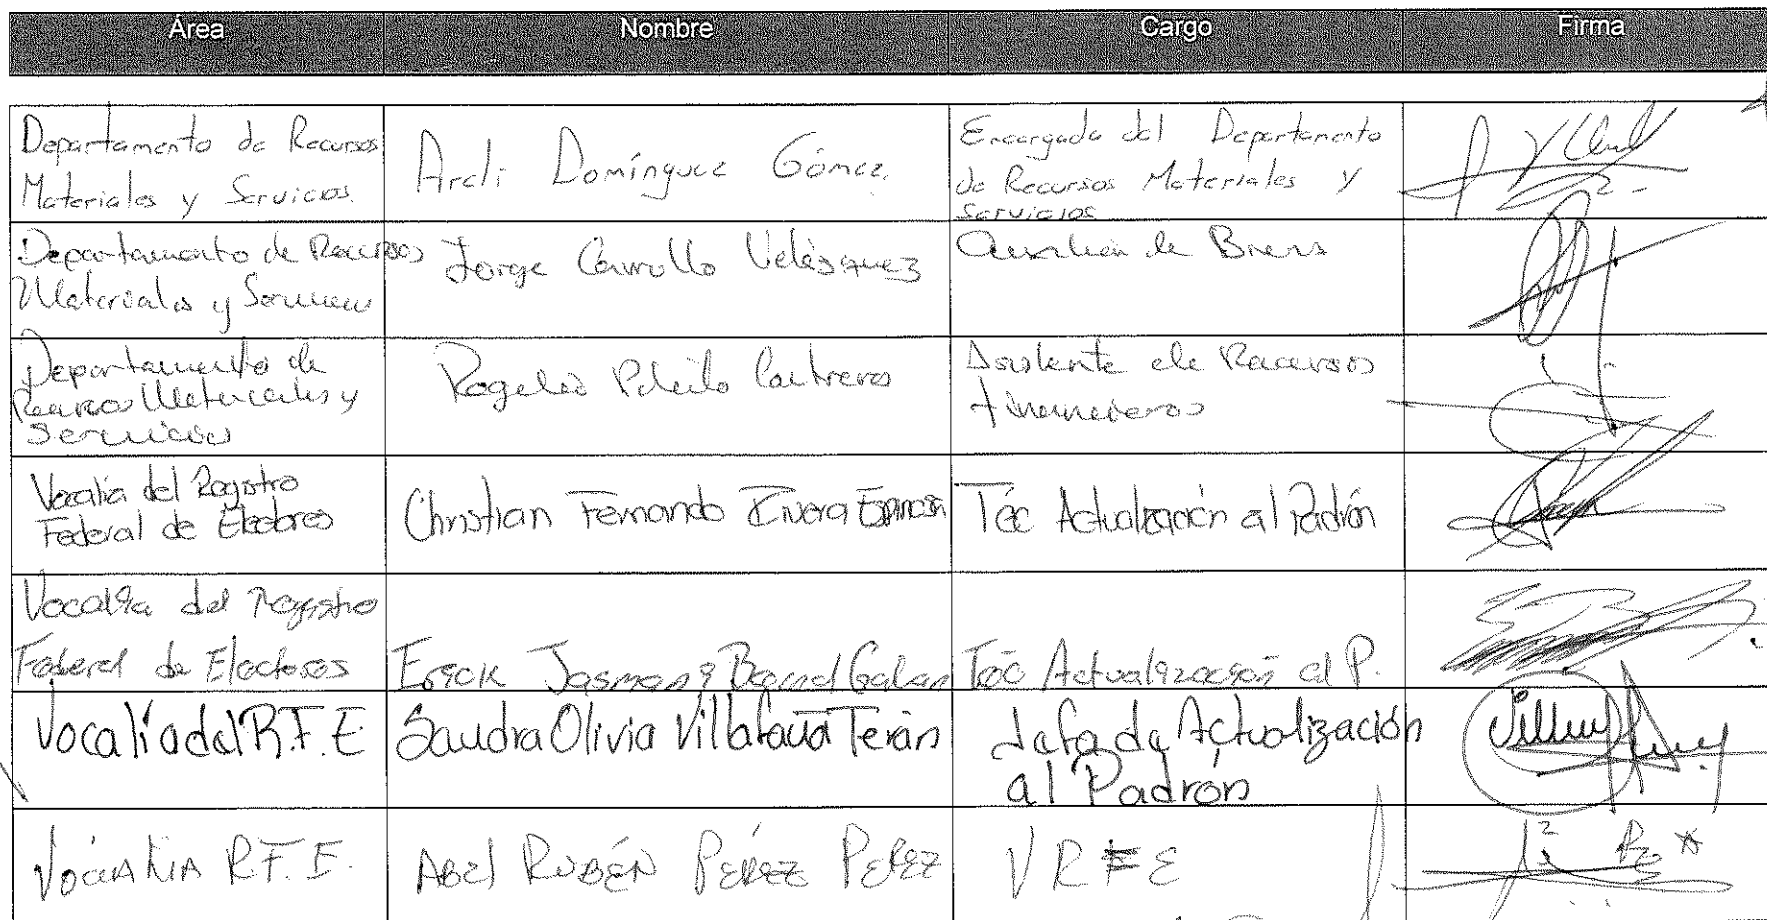 Área Nombre Cargo Firma
Departamento de Recursos
Materiales y Servicios.
Areli Domínguez Gómez.
Encargada del Departamento
de Recursos Materiales y
Servicios
Departamento de Recursos
Materiales y Servicios
Jorge Carrollo Velásquez
de Biens
Departamento de
Recursos Materiales y
Servicios
Rogelio
Asistente de Recursos
Financieros
Vocalía del Registro
Federal de Electores
Christian Fernando Rivera Espinosa
Téc Actualización al Padrón
Vocalía del Registro
Federal de Electores
Erick
Téc Actualización al P.
Vocalía del R.F.E
Sandra Olivia Villafaña Terán
Jefa de Actualización
al Padrón
Vocalía R.F.E.
Abel Rubén Pérez Pérez
VRFE